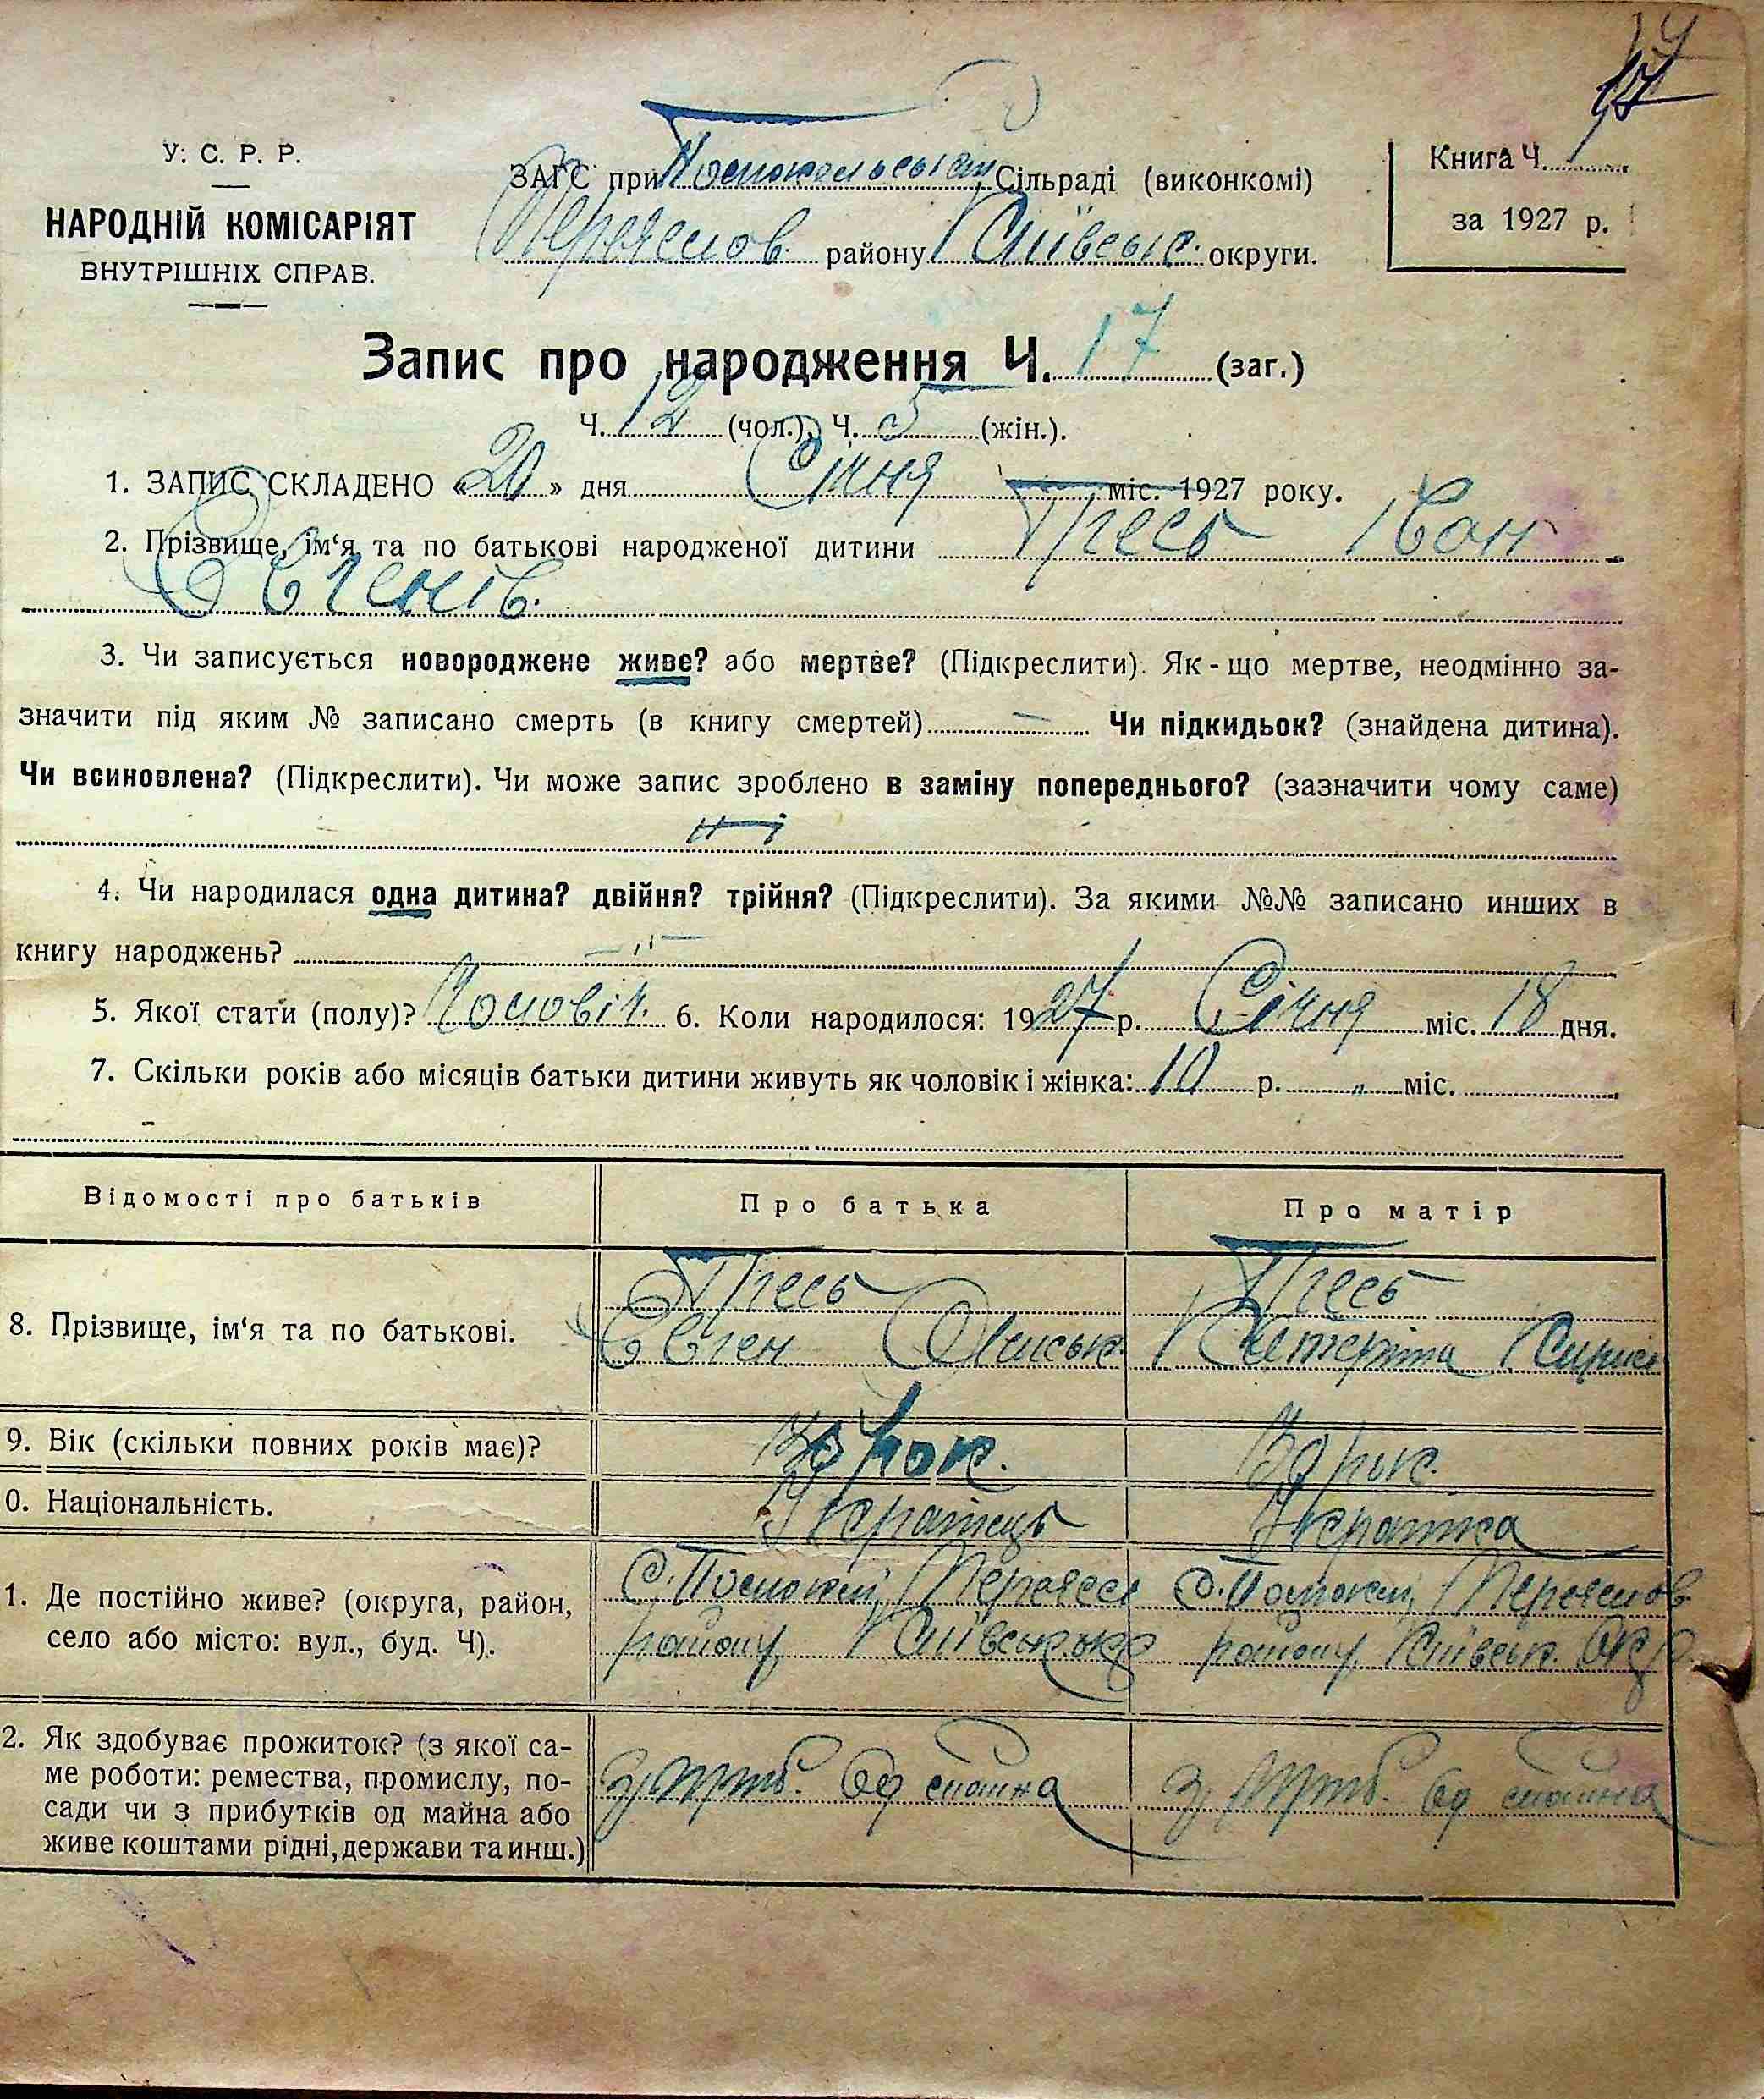 У. С. Р. Р.
НАРОДНІЙ КОМІСАРІЯТ
ВНУТРІШНІХ СПРАВ.
ЗАГС при Сільраді (виконкомі)
Переяслов району Київськ. округи.
Книга Ч.
за 1927 р.
Запис про народження Ч. 17 (заг.)
Ч. 12 (чол.), Ч. 5 (жін.).
1. ЗАПИС СКЛАДЕНО «20» дня Січня міс. 1927 року.
2. Прізвище, ім‘я та по батькові народженої дитини Пгесь Іван
Євгенів.
3. Чи записується новороджене живе? або мертве? (Підкреслити). Як-що мертве, неодмінно за-
значити під яким № записано смерть (в книгу смертей) — Чи підкидьок? (знайдена дитина).
Чи всиновлена? (Підкреслити). Чи може запис зроблено в заміну попереднього? (зазначити чому саме)
ні
4. Чи народилася одна дитина? двійня? трійня? (Підкреслити). За якими №№ записано инших в
книгу народжень? — " —
5. Якої стати (полу)? Чоловіч. 6. Коли народилося: 1927 р. Січня міс. 18 дня.
7. Скільки років або місяців батьки дитини живуть як чоловік і жінка: 10 р. " міс.
Відомості про батьків
Про батька
Про матір
8. Прізвище, ім‘я та по батькові.
Пгесь
Євген
Пгесь
Катеріна
9. Вік (скільки повних років має)?
рок.
30 рок.
0. Національність.
Українець
Українка
1. Де постійно живе? (округа, район,
село або місто: вул., буд. Ч).
району
району, Київськ. окр.
2. Як здобуває прожиток? (з якої са-
ме роботи: ремества, промислу, по-
сади чи з прибутків од майна або
живе коштами рідні, держави та инш.)